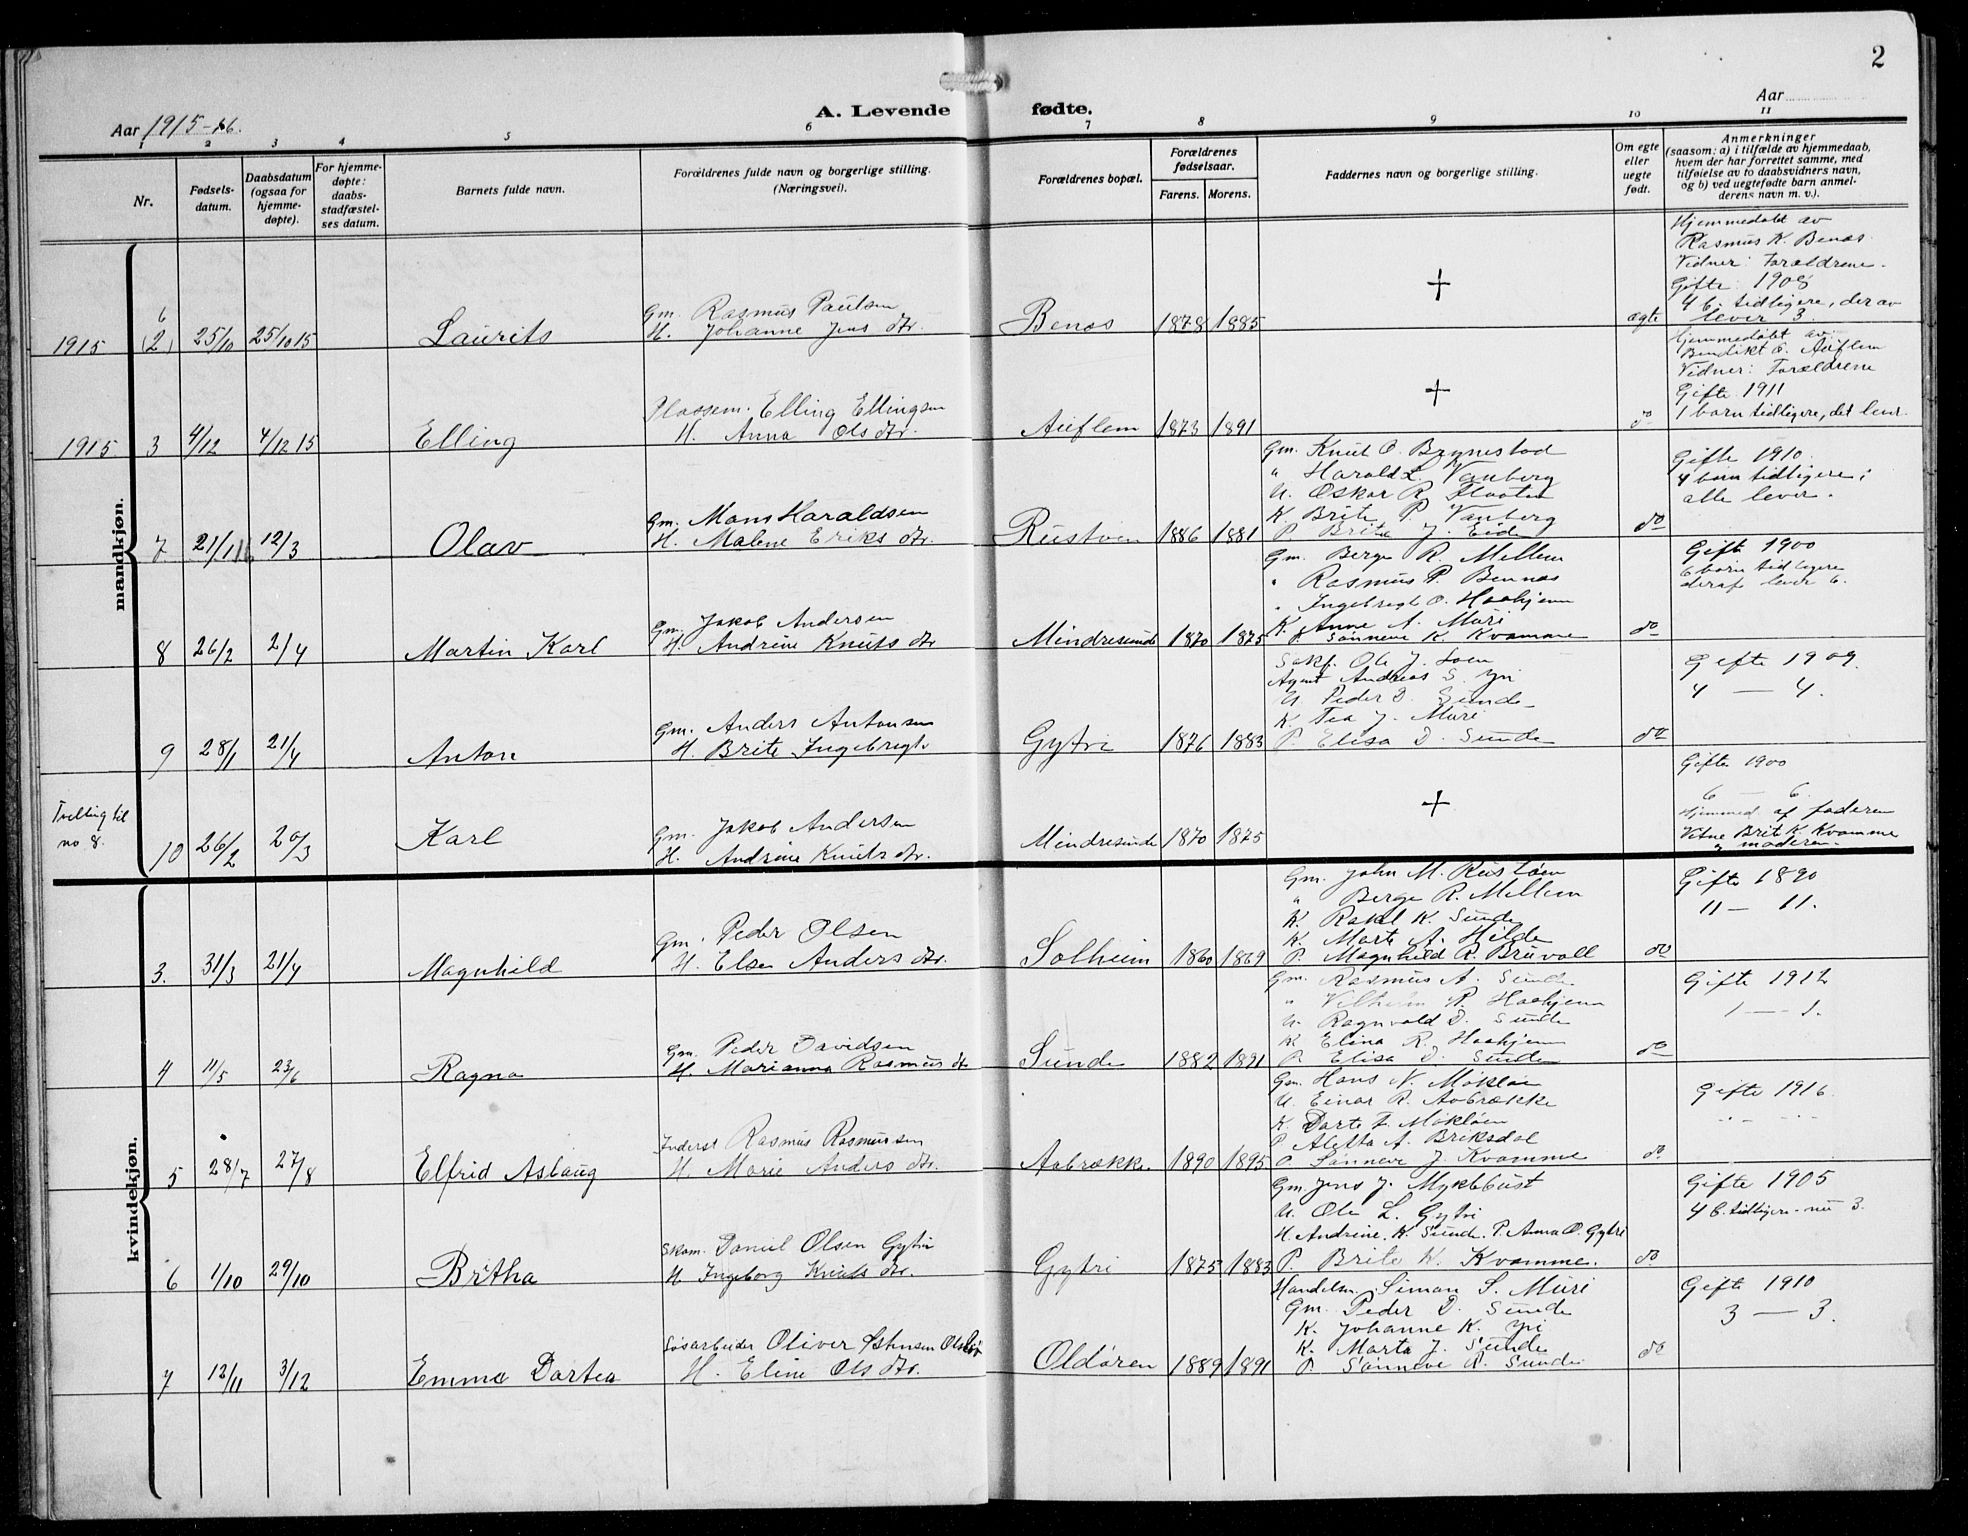 2
Aar 1915-16.
A. Levende fødte.
Aar
1 2 3 4 5 6 7 8 9 10 11
Nr.
Fødsels-
datum.
Daabsdatum
(ogsaa for
hjemme-
døpte).
For hjemme-
døpte:
daabs-
stadfæstel-
ses datum.
Barnets fulde navn.
Forældrenes fulde navn og borgerlige stilling.
(Næringsvei).
Forældrenes bopæl.
Forældrenes
fødselsaar.
Farens. Morens.
Faddernes navn og borgerlige stilling.
Om egte
eller
uegte
født.
Anmerkninger
(saasom: a) i tilfælde av hjemmedaab,
hvem der har forrettet samme, med
tilføielse av to daabsvidners navn,
og b) ved uegtefødte barn anmel-
derens navn m. v.).
mandkjøn.
1915 6 (2) 25/10 25/10 15 Laurits
Gm. Rasmus Paulsen
H. Johanne Jens dtr.
Benos 1878 1885 + ægte
Hjemmedøbt av
Rasmus K. Benos.
Vidner: Forældrene.
Gifte 1908
4 b. tidligere, der av
lever 3.
1915 3 4/12 4/12 15 Elling
Plassem. Elling Ellingsen
H. Anna Ols dtr.
Auflem 1873 1891 + do
Hjemmedøbt av
Bendikt O. Auflem
Vidner: Forældrene
Gifte 1911
1 barn tidligere, det lever.
7 21/1 16 12/3 Olav
Gm. Mons Haraldsen
H. Malene Eriks dtr.
Rustøen 1886 1881
Gm. Knut O. Brynestad
" Harald L. Vanberg
U. Oskar R. Floten
K. Brite P. Vanberg
P. Brita J. Eide
do
Gifte 1910.
4 born tidligere;
alle lever.
8 26/2 2/4 Martin Karl
Gm. Jakob Andersen
H. Andrine Knuts dtr
Mindresunde 1870 1875
Gm. Berge R. Mellem
" Rasmus P. Bennos
" Ingebregt O. Haahjem
K. Anne A. Muri
P. Sønneve K. Kvamme
do
Gifte 1900
6 born tidligere
deraf lever 6.
9 28/1 21/4 Anton
Gm. Anders Antonsen
H. Brite Ingebregts
Gytri 1876 1883
Sakf. Ole J. Loen
Agent Andreas S. Yri
U. Peder D. Sunde
K. Tea J. Muri
P. Elisa D. Sunde
do
Gifte 1909.
4 — 4.
Tvilling til
no 8.
10 26/2 20/3 Karl
Gm. Jakob Andersen
H. Andrine Knuts dtr.
Mindresunde 1870 1875 +
Gifte 1900
6 — 6.
Hjemmed af faderen
Vitne Brit K. Kvamme
og moderen.
kvindekjøn.
3. 31/3 21/4 Magnhild
Gm. Peder Olsen
H. Else Anders dtr.
Solheim 1860 1869
Gm. John M. Rustøen
" Berge R. Mellem
K. Rakel K. Sunde
K. Marte A. Hilde
P. Magnhild R. Bruvoll
do
Gifte 1890
11 — 11.
4 11/5 23/6 Ragna
Gm. Peder Davidsen
H. Marianna Rasmus dtr
Sunde 1882 1891
Gm. Rasmus A. Sunde
" Vilhelm R. Haahjem
U. Ragnvald D. Sunde
K. Elina R. Haahjem
P. Elisa D. Sunde
do
Gifte 1912
1 — 1.
5 28/7 27/8 Elfrid Aslaug
Inderst Rasmus Rasmussen
H. Marie Anders dtr.
Aabrække 1890 1895
Gm. Hans N. Møkløen
U. Einar R. Aabrække
K. Dorte T. Møkløen
P. Aletta A. Briksdal
P. Sønneve J. Kvamme
do
Gifte 1916
6 1/10 29/10 Britha
Skom. Daniel Olsen Gytri
H. Ingeborg Knuts dtr.
Gytri 1875 1883
Gm. Jens J. Myklebust
U. Ole L. Gytri
H. Andrine K. Sunde. P. Anna O. Gytri
P. Brite K. Kvamme.
do
Gifte 1905
4 b. tidligere - nu 3.
7 12/11 3/12 Emma Dortea
Oliver
H. Eline Ols dtr.
Oldøren 1889 1891
Handelsm. Simon S. Muri
Gm. Peder D. Sunde
K. Johanne K. Yri
K. Marta J. Sunde
P. Sønneve R. Sunde
do
Gifte 1910
3 — 3.